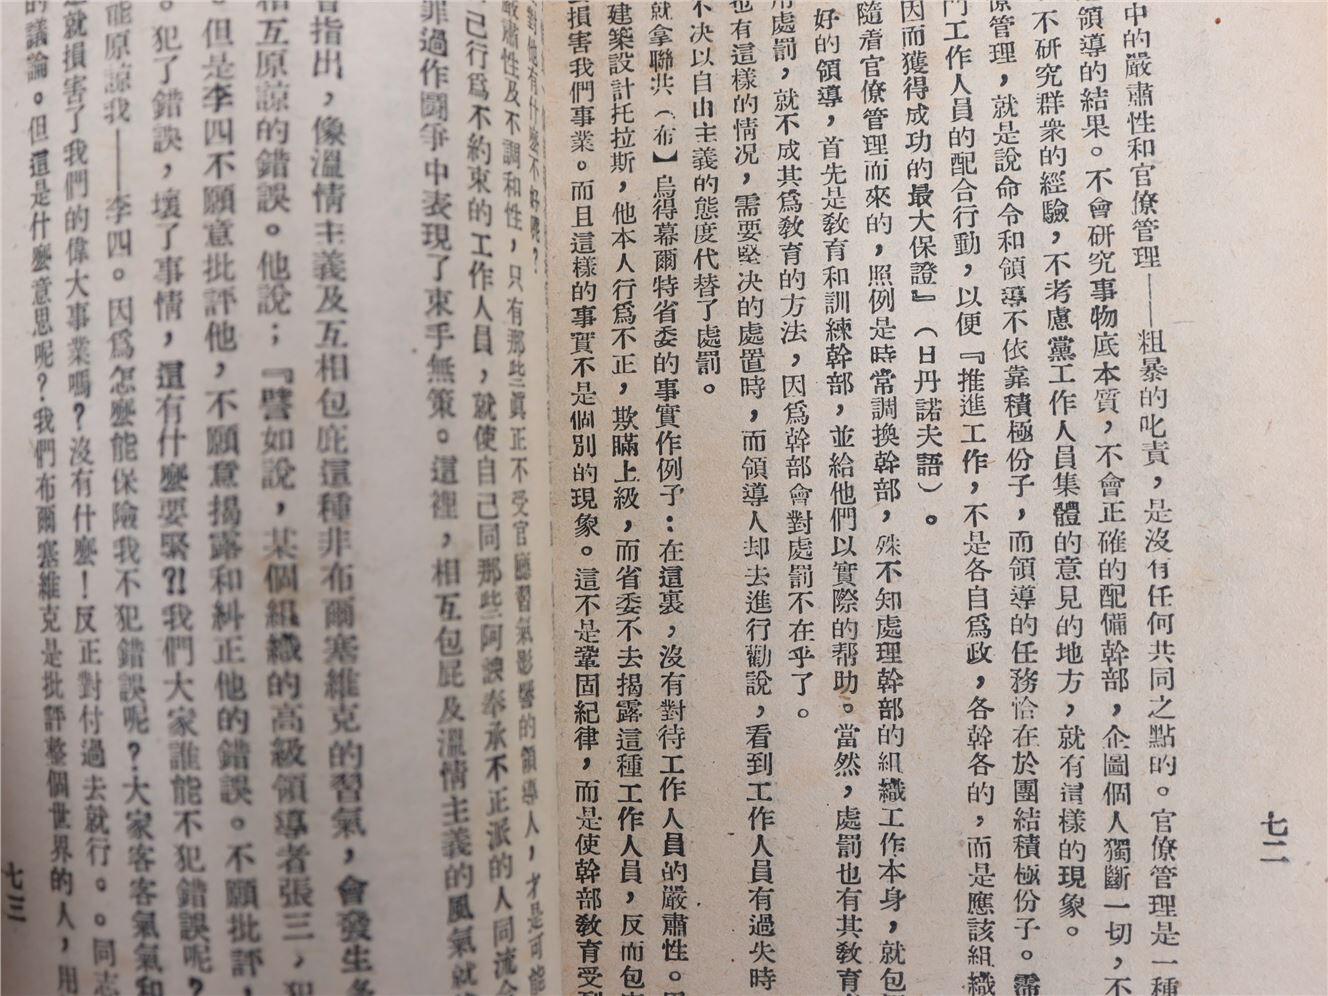 七二
中的嚴肅性和官僚管理——粗暴的叱責，是沒有任何共同之點的。官僚管理是一種
領導的結果。不會研究事物底本質，不會正確的配備幹部，企圖個人獨斷一切，不
不研究群衆的經驗，不考慮黨工作人員集體的意見的地方，就有這樣的現象。
僚管理，就是說命令和領導不依靠積極份子，而領導的任務恰在於團結積極份子。需
門工作人員的配合行動，以便『推進工作，不是各自爲政，各幹各的，而是應該組織
因而獲得成功的最大保證』（日丹諾夫語）。
隨着官僚管理而來的，照例是時常調換幹部，殊不知處理幹部的組織工作本身，就包
好的領導，首先是敎育和訓練幹部，並給他們以實際的帮助。當然，處罰也有其敎育
用處罰，就不成其爲敎育的方法，因爲幹部會對處罰不在乎了。
也有這樣的情况，需要堅决的處置時，而領導人却去進行勸說，看到工作人員有過失時
不决以自由主義的態度代替了處罰。
就拿聯共（布】烏得幕爾特省委的事實作例子：在這裏，沒有對待工作人員的嚴肅性。
建築設計托拉斯，他本人行爲不正，欺瞞上級，而省委不去揭露這種工作人員，反而包
損害我們事業。而且這樣的事實不是個別的現象。這不是鞏固紀律，而是使幹部敎育受
對他有什麼不好呢？
嚴肅性及不調和性，只有那些眞正不受官廳習氣影響的領導人，才是可能
己行爲不約束的工作人員，就使自己同那些阿諛奉承不正派的人同流
罪過作鬪爭中表現了束手無策。這裡，相互包屁及溫情主義的風氣就
指出，像溫情主義及互相包庇這種非布爾塞維克的習氣，會發生
相互原諒的錯誤。他說；『譬如說，某個組織的高級領導者張三，犯
但是李四不願意批評他，不願意揭露和糾正他的錯誤。不願批評，
犯了錯誤，壞了事情，還有什麼要緊？！我們大家誰能不犯錯誤呢？
能原諒我——李四。因爲怎麼能保險我不犯錯誤呢？大家客客氣氣和
這就損害了我們的偉大事業嗎？沒有什麼！反正對付過去就行。。同志
的議論。但這是什麼意思呢？我們布爾塞維克是批評整個世界的人，用
七三